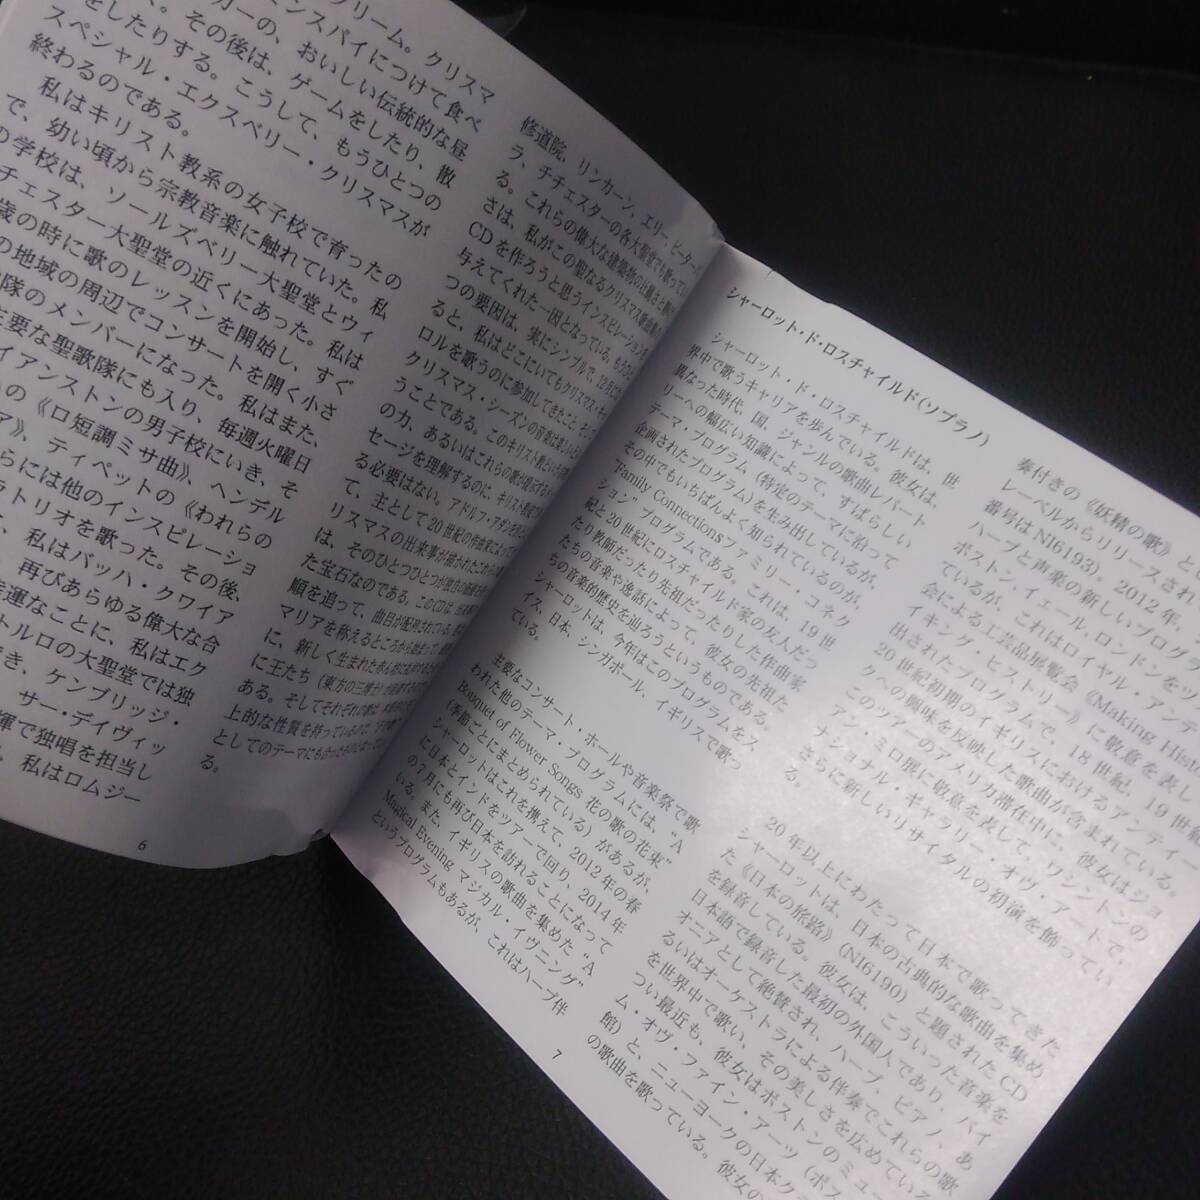 クリーム。クリスマ
ンスパイにつけて食べ
カーの、おいしい伝統的な昼
。その後は、ゲームをしたり、散
をしたりする。こうして、もうひとつの
スペシャル・エクスベリー・クリスマスが
終わるのである。
私はキリスト教系の女子校で育ったの
で、幼い頃から宗教音楽に触れていた。私
の学校は、ソールズベリー大聖堂とウィ
チェスター大聖堂の近くにあった。私は
歳の時に歌のレッスンを開始し、すぐ
の地域の周辺でコンサートを開く小さ
隊のメンバーになった。私はまた、
主要な聖歌隊にも入り、毎週火曜日
イアンストンの男子校にいき、そ
の《ロ短調ミサ曲》、ヘンデル
ア》、ティペットの《われらの
らには他のインスピレーショ
ラトリオを歌った。その後、
、私はバッハ・クワイア
再びあらゆる偉大な合
幸運なことに、私はエク
トルロの大聖堂では独
き、ケンブリッジ・
サー・デイヴィッ
揮で独唱を担当し
、私はロムジー
修道院、リンカーン、エリー、ピーター
ラ、チチェスターの各大聖堂でも歌ってい
る。これらの偉大な建築物の壮麗さと
さは、私がこの聖なるクリスマス歌曲集の
CDを作ろうと思うインスピレーションを
与えてくれた一因となっている。もうひと
つの要因は、実にシンプルで、12月にな
ると、私はどこにいてもクリスマス・キャ
ロルを歌うのに参加してきたこと、そして
クリスマス・シーズンの音楽は楽しい
うことである。このキリスト教という
の力、あるいはこれらの歌が暗示する
セージを理解するのに、キリスト教徒で
る必要はない。アドルフ・アダンを
て、主として20世紀の作曲家によって
リスマスの出来事が描かれた
は、そのひとつひとつが独自の価値を
た宝石なのである。このCDは、
順を追って、曲目が配列されている。
マリアを称えるところから始まって、
に、新しく生まれた赤ん坊に
に王たち（東方の三博士）が
ある。そしてそれぞれの歌は、
上的な性質を持っているので、
としてのテーマにも合った
る。
6
シャーロット・ド・ロスチャイルド（ソプラノ）
シャーロット・ド・ロスチャイルドは、世
界中で歌うキャリアを歩んでいる。彼女は、
異なった時代、国、ジャンルの歌曲レパート
リーへの幅広い知識によって、すばらしい
テーマ・プログラム（特定のテーマに沿って
企画されたプログラム）を生み出しているが、
その中でもいちばんよく知られているのが、
“Family Connectionsファミリー・コネク
ション”プログラムである。これは、19世
紀と20世紀にロスチャイルド家の友人だっ
たり教師だったり先祖だったりした作曲家
たちの音楽や逸話によって、彼女の先祖た
ちの音楽的歴史を辿ろうというものである。
シャーロットは、今年はこのプログラムをス
イス、日本、シンガポール、イギリスで歌っ
ている。
主要なコンサート・ホールや音楽祭で歌
われた他のテーマ・プログラムには、“A
Bouquet of Flower Songs 花の歌の花束”
（季節ごとにまとめられている）があるが、
シャーロットはこれを携えて、2012年の春
に日本とインドをツアーで回り、2014年
の7月にも再び日本を訪れることになって
いる。また、イギリスの歌曲を集めた“A
Magical Evening マジカル・イヴニング”
というプログラムもあるが、これはハープ伴
奏付きの《妖精の歌》と
レーベルからリリースされ
番号はNI6193）。2012年、
ハープと声楽の新しいプログラ
ボストン、イェール、ロンドンをツ
ているが、これはロイヤル・アンテ
会による工芸品展覧会《Making Hist
イキング・ヒストリー》に敬意を表し
出されたプログラムで、18世紀、19世紀
20世紀初期のイギリスにおけるアンティー
クへの興味を反映した歌曲が含まれている。
このツアーのアメリカ滞在中に、彼女はジョ
アン・ミロ展に敬意を表して、ワシントンの
ナショナル・ギャラリー・オヴ・アートで、
さらに新しいリサイタルの初演を飾ってい
る。
20年以上にわたって日本で歌ってきた
シャーロットは、日本の古典的な歌曲を集め
た《日本の旅路》（NI6190）と題されたCD
を録音している。彼女は、こういった音楽を
日本語で録音した最初の外国人であり、パイ
オニアとして絶賛され、ハープ、ピアノ、あ
るいはオーケストラによる伴奏でこれらの歌
を世界中で歌い、その美しさを広めている
つい最近も、彼女はボストンのミュー
ム・オヴ・ファイン・アーツ（ボス
館）と、ニューヨークの日本ク
の歌曲を歌っている。彼女の
7